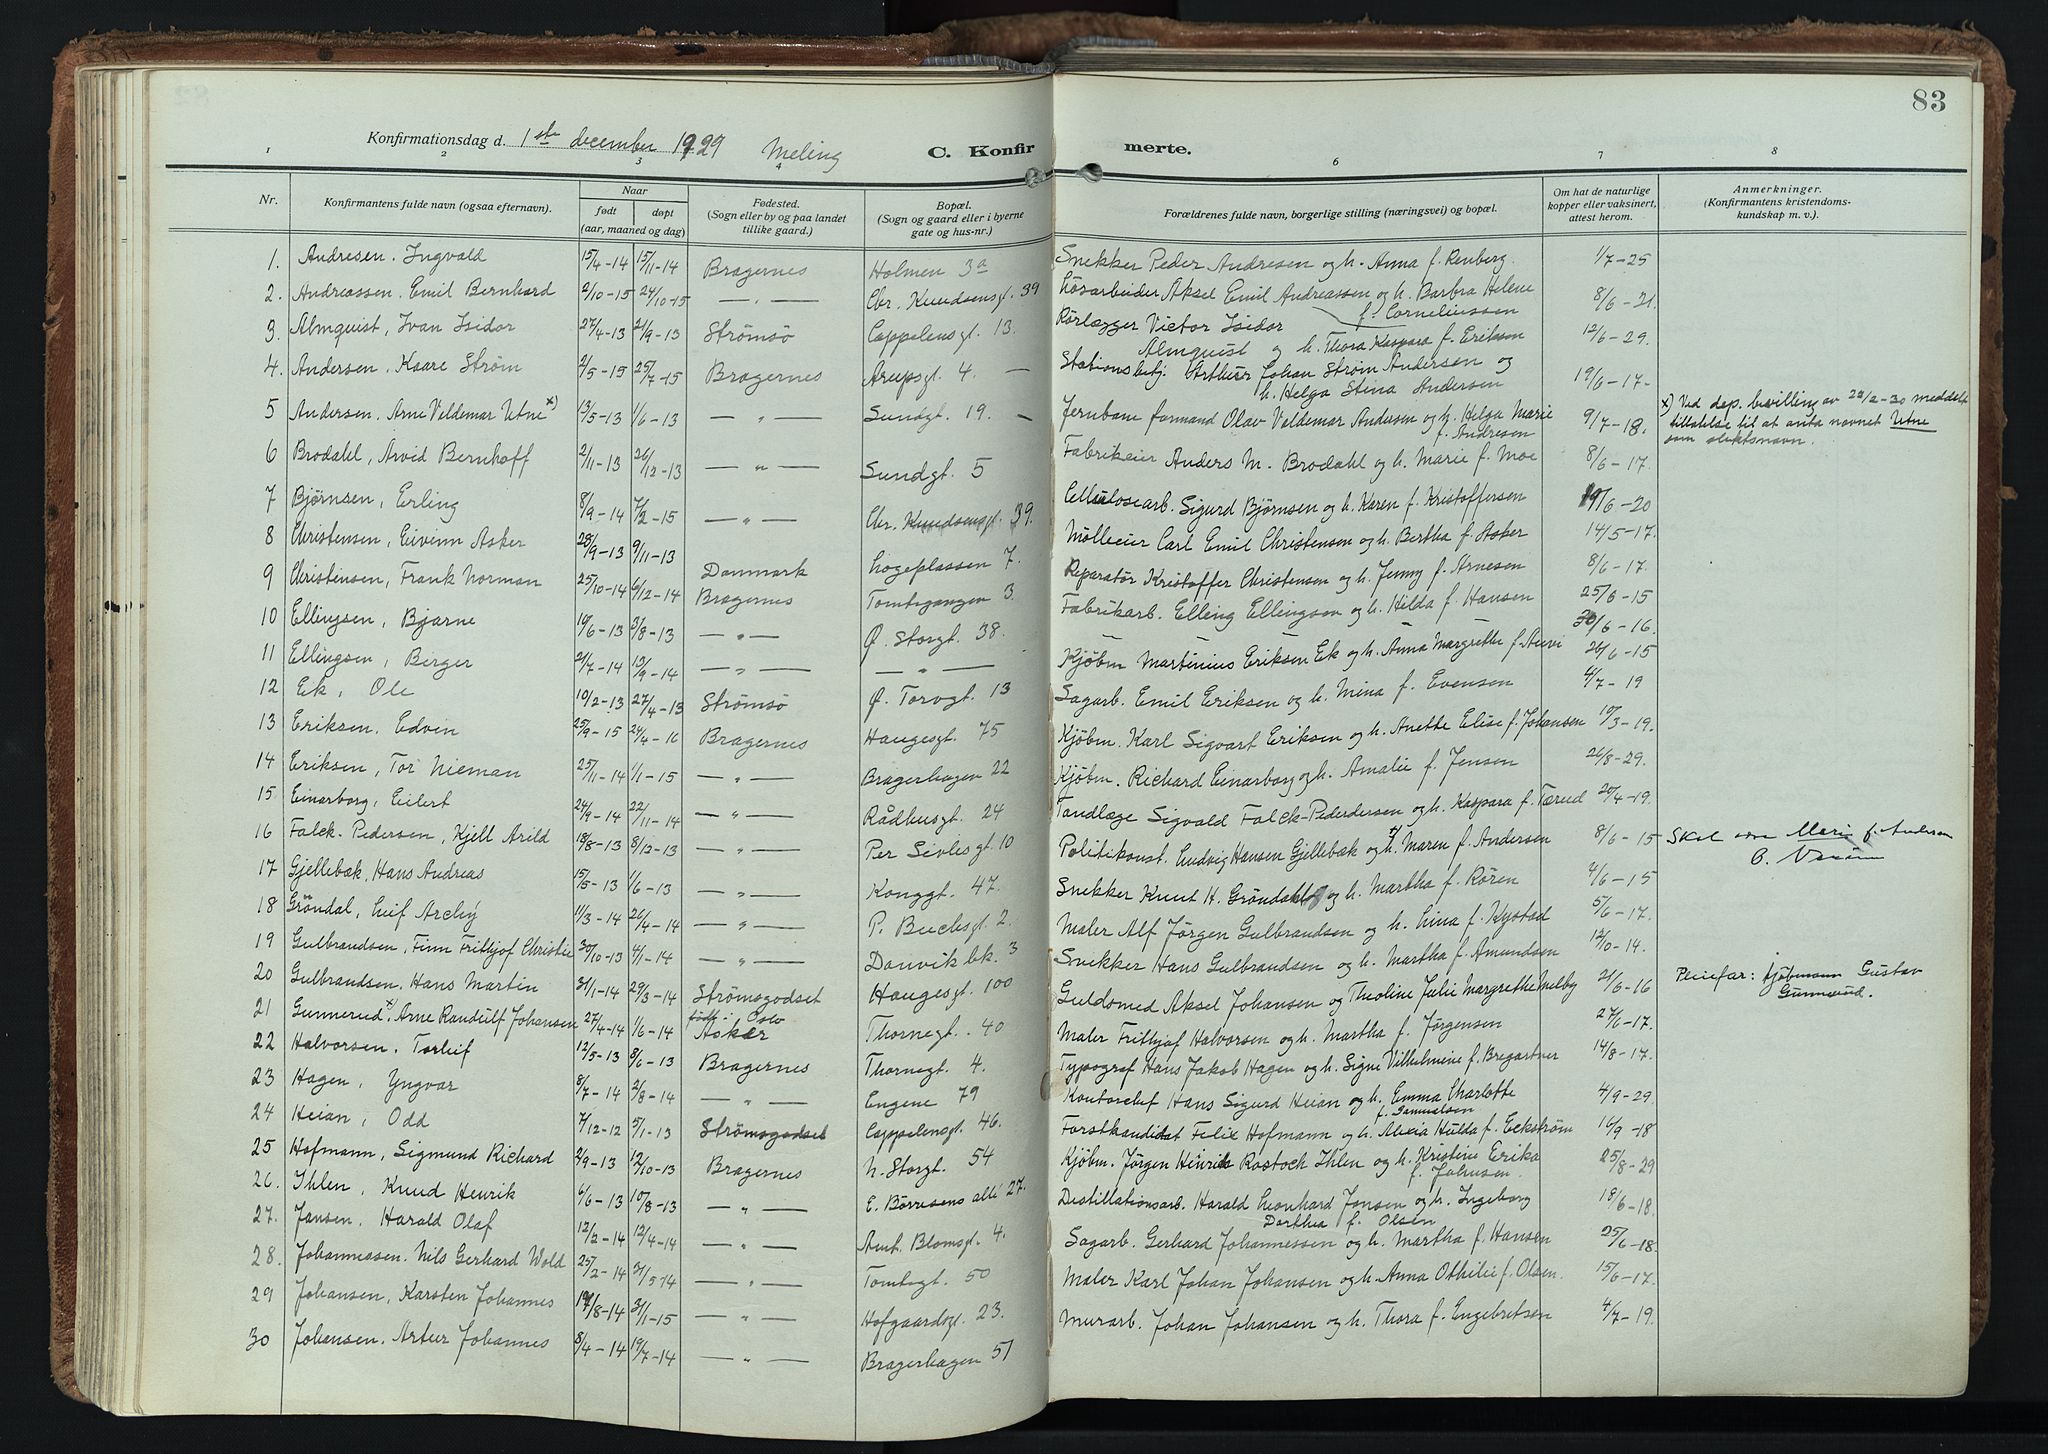 83
Konfirmationsdag d. 1ste december 1929 Meling
C. Konfirmerte.
1 2 3 4 6 7 8
Nr.
Konfirmantens fulde navn (ogsaa efternavn).
Naar
født døpt
(aar, maaned og dag)
Fødested.
(Sogn eller by og paa landet
tillike gaard.)
Bopæl.
(Sogn og gaard eller i byerne
gate og hus-nr.)
Forældrenes fulde navn, borgerlige stilling (næringsvei) og bopæl.
Om hat de naturlige
kopper eller vaksinert,
attest herom.
Anmerkninger.
(Konfirmantens kristendoms-
kundskap m. v.).
1. Andresen. Ingvald 15/4-14 15/11-14 Bragernes Holmen 3a Snekker Peder Andresen og h. Anna f. Renberg. 1/7-25
2. Andreassen. Emil Bernhard 2/10-15 24/10-15 — " — Chr. Knudsensgt. 39 Løsarbeider Aksel Emil Andreassen og h. Barbra Helene 8/6-21.
f. Corneliussen
3. Almquist, Ivan Isidor 27/4-13 21/9-13 Strømsø Cappelensgt. 13. Rørlægger Victor Isidor
Almquist og h. Thora Kaspara f. Erikson 12/6-29.
4. Andersen. Kaare Strøm 2/5-15 25/7-15 Bragernes Arupsgt. 4. — Stationsbetj. Arthur Johan Strøm Andersen og
h. Helga Stina Andersen 19/6-17.
5 Andersen. Arne Veldemar Utne x) 13/5-13 1/6-13 — " — Sundgt. 19. — Jernbane formand Olav Veldemar Andersen og h. Helga Marie 9/7-18.
f. Andresen
x) Ved dep. bevilling av 22/2-30 meddelt
tillatelse til at anta navnet Utne
som slektsnavn.
6 Brodahl, Arvid Bernhoff 2/11-13 26/12-13 — " — Sundgt. 5 Fabrikeier Anders M. Brodahl og h. Marie f. Moe 8/6-17.
7 Bjørnsen, Erling 8/9-14 7/2-15 — " — Chr. Knudsensgt. 39. Cellulosearb. Sigurd Bjørnsen og h. Karen f. Kristoffersen 19/6-20
8 Christensen, Eivinn Asker 28/9-13 9/11-13 Danmark Logeplassen 7. Mølleeier Carl Emil Christensen og h. Bertha f. Asker 14/5-17.
9 Christensen, Frank Norman 25/10-14 6/12-14 Bragernes Tomtegangen 3. Reparatør Kristoffer Christensen og h. Jenny f. Arnesen 8/6-17.
10 Ellingsen, Bjarne 19/6-13 3/8-13 — " — Ø. Storgt. 38. Fabrikarb. Elling Ellingsen og h. Hilda f. Hansen 25/6-15
11 Ellingsen, Berger 21/7-14 13/9-14 — " — — " — 30/6-16.
12 Ek, Ole 10/2-13 27/4-13 Strømsø Ø. Torvgt. 13 Kjøbm Martinius Eriksen Ek og h. Anna Margrethe f. 26/6-15
13 Eriksen. Edvin 25/9-15 24/4-16 Bragernes Haugesgt. 75 Sagarb. Emil Eriksen og h. Mina f. Evensen 4/7-19
14 Eriksen, Tor Nieman 25/11-14 1/1-15 — " — Bragerhagen 22 Kjøbm. Karl Sigvart Eriksen og h. Anette Elise f. Johansen 19/3-19.
15 Einarborg, Eilert 24/9-14 22/11-14 — " — Rådhusgt. 24 Kjøbm. Richard Einarborg og h. Amalie f. Jensen 26/8-29.
16 Falck-Pedersen, Kjell Arild 18/8-13 8/12-13 — " — Per Sivlesgt 10 Tandlæge Sigvald Falck-Pederdersen og h. Kaspara f. Tærud 20/4-19.
17 Gjellebæk, Hans Andreas 15/5-13 1/6-13 — " — Konggt. 47. Politikonst. Ludvig Hansen Gjellebæk og h. Maren f. Andersen 8/6-15 Skal være Marie f. Andersen
18 Grøndal, Leif Archy 11/3-14 26/4-14 — " — P. Buchsgt. 2. Snekker Knut H. Grøndahl og h. Martha f. Røren 4/6-15
19 Gulbrandsen, Finn Frithjof Christie 30/10-13 4/1-14 — " — Danvik bk. 3 Maler Alf Jørgen Gulbrandsen og h. Lina f. Kystad 5/6-17.
20 Gulbrandsen. Hans Martin 31/1-14 29/3-14 Strømsgodset Haugesgt. 100 Snekker Hans Gulbrandsen og h. Martha f. Amundsen 12/10-14.
21 Gunnerud x). Arne Randulf Johansen 27/4-14 1/6-14 født i Oslo
Asker Thornegt. 40 Guldsmed Aksel Johansen og Theoline Julie Margrethe Melby 21/6-16 Pleiefar: Kjøbmann Gustav
Gunnerud.
22 Halvorsen. Torleif 12/5-13 8/6-13 Bragernes Thornegt. 4. Maler Frithjof Halvorsen og h. Martha f. Jørgensen 27/6-17.
23 Hagen, Yngvar 8/7-14 2/8-14 — " — Engene 79 Typograf Hans Jakob Hagen og h. Signe Vilhelmine f. Bregartner 14/8-17.
24 Heian, Odd 7/12-12 5/1-13 Strømsgodset Cappelensgt. 46. Kontorchef Hans Sigurd Heian og h. Emma Charlotte 4/9-29.
f. Samuelsen
25 Hofmann, Sigmund Richard 2/9-13 12/10-13 Bragernes N. Storgt. 54 Forstkandidat Felix Hofmann og h. Alexia Hulda f. Eckstrøm 16/9-18
26. Ihlen, Knud Henrik 6/6-13 10/8-13 — " — E. Børresens allé 27. Kjøbm. Jørgen Henrik Rostoch Ihlen og h. Kristine Erika 25/8-29
f. Johnsen.
27. Jansen. Harald Olaf 12/2-14 12/4-14 — " — Ant. Blomsgt. 4. Destillationsarb. Harald Leonhard Jansen og h. Ingeborg 18/6-18.
Dorthea f. Olsen
28. Johannessen. Nils Gerhard Wold 25/2-14 31/5 14 — " — Tomtegt. 50 Sagarb. Gerhard Johannessen og h. Martha f. Hansen 25/6-18.
29 Johansen, Karsten Johannes 19/8-14 31/1-15 — " — Hofgaardsgt. 23. Maler Karl Johan Johansen og h. Anna Othilie f. Olsen. 15/6-17.
30 Johansen. Artur Johannes 8/4-14 19/7-14 — " — Bragerhagen 51 Murarb. Johan Johansen og h. Thora f. Engebretsen 4/7-19.